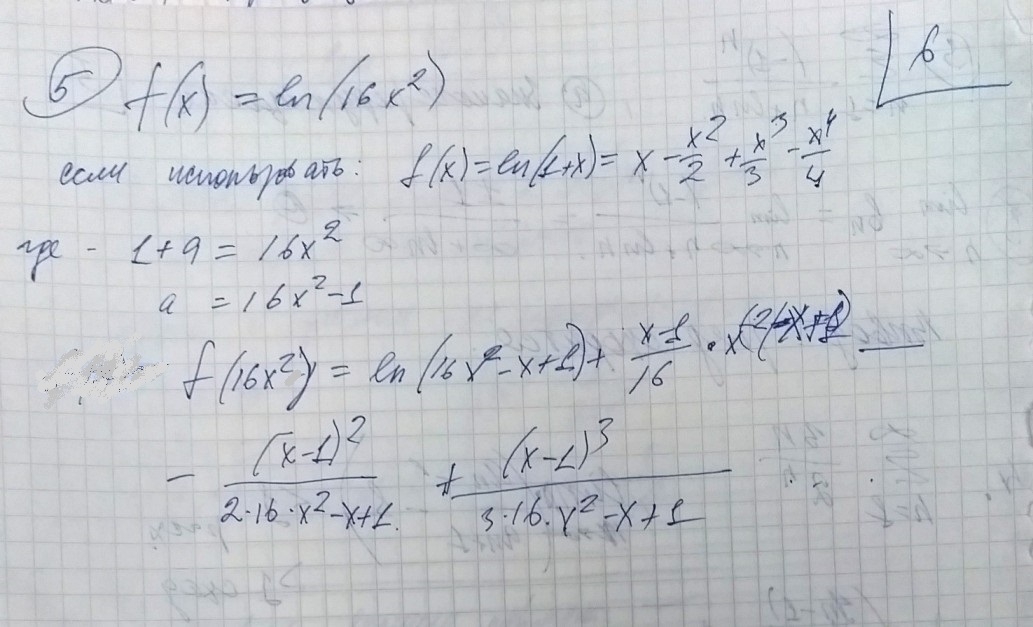 6
5 f(x) = ln(16x²)
если использовать: f(x) = ln(1+x) = x - x²/2 + x³/3 - x⁴/4
где - 1+a = 16x²
a = 16x²-1
f(16x²) = ln(16x²-x+1) + (x-1)/16 · x
- (x-1)²/(2·16·x²-x+1) + (x-1)³/(3·16·x²-x+1)